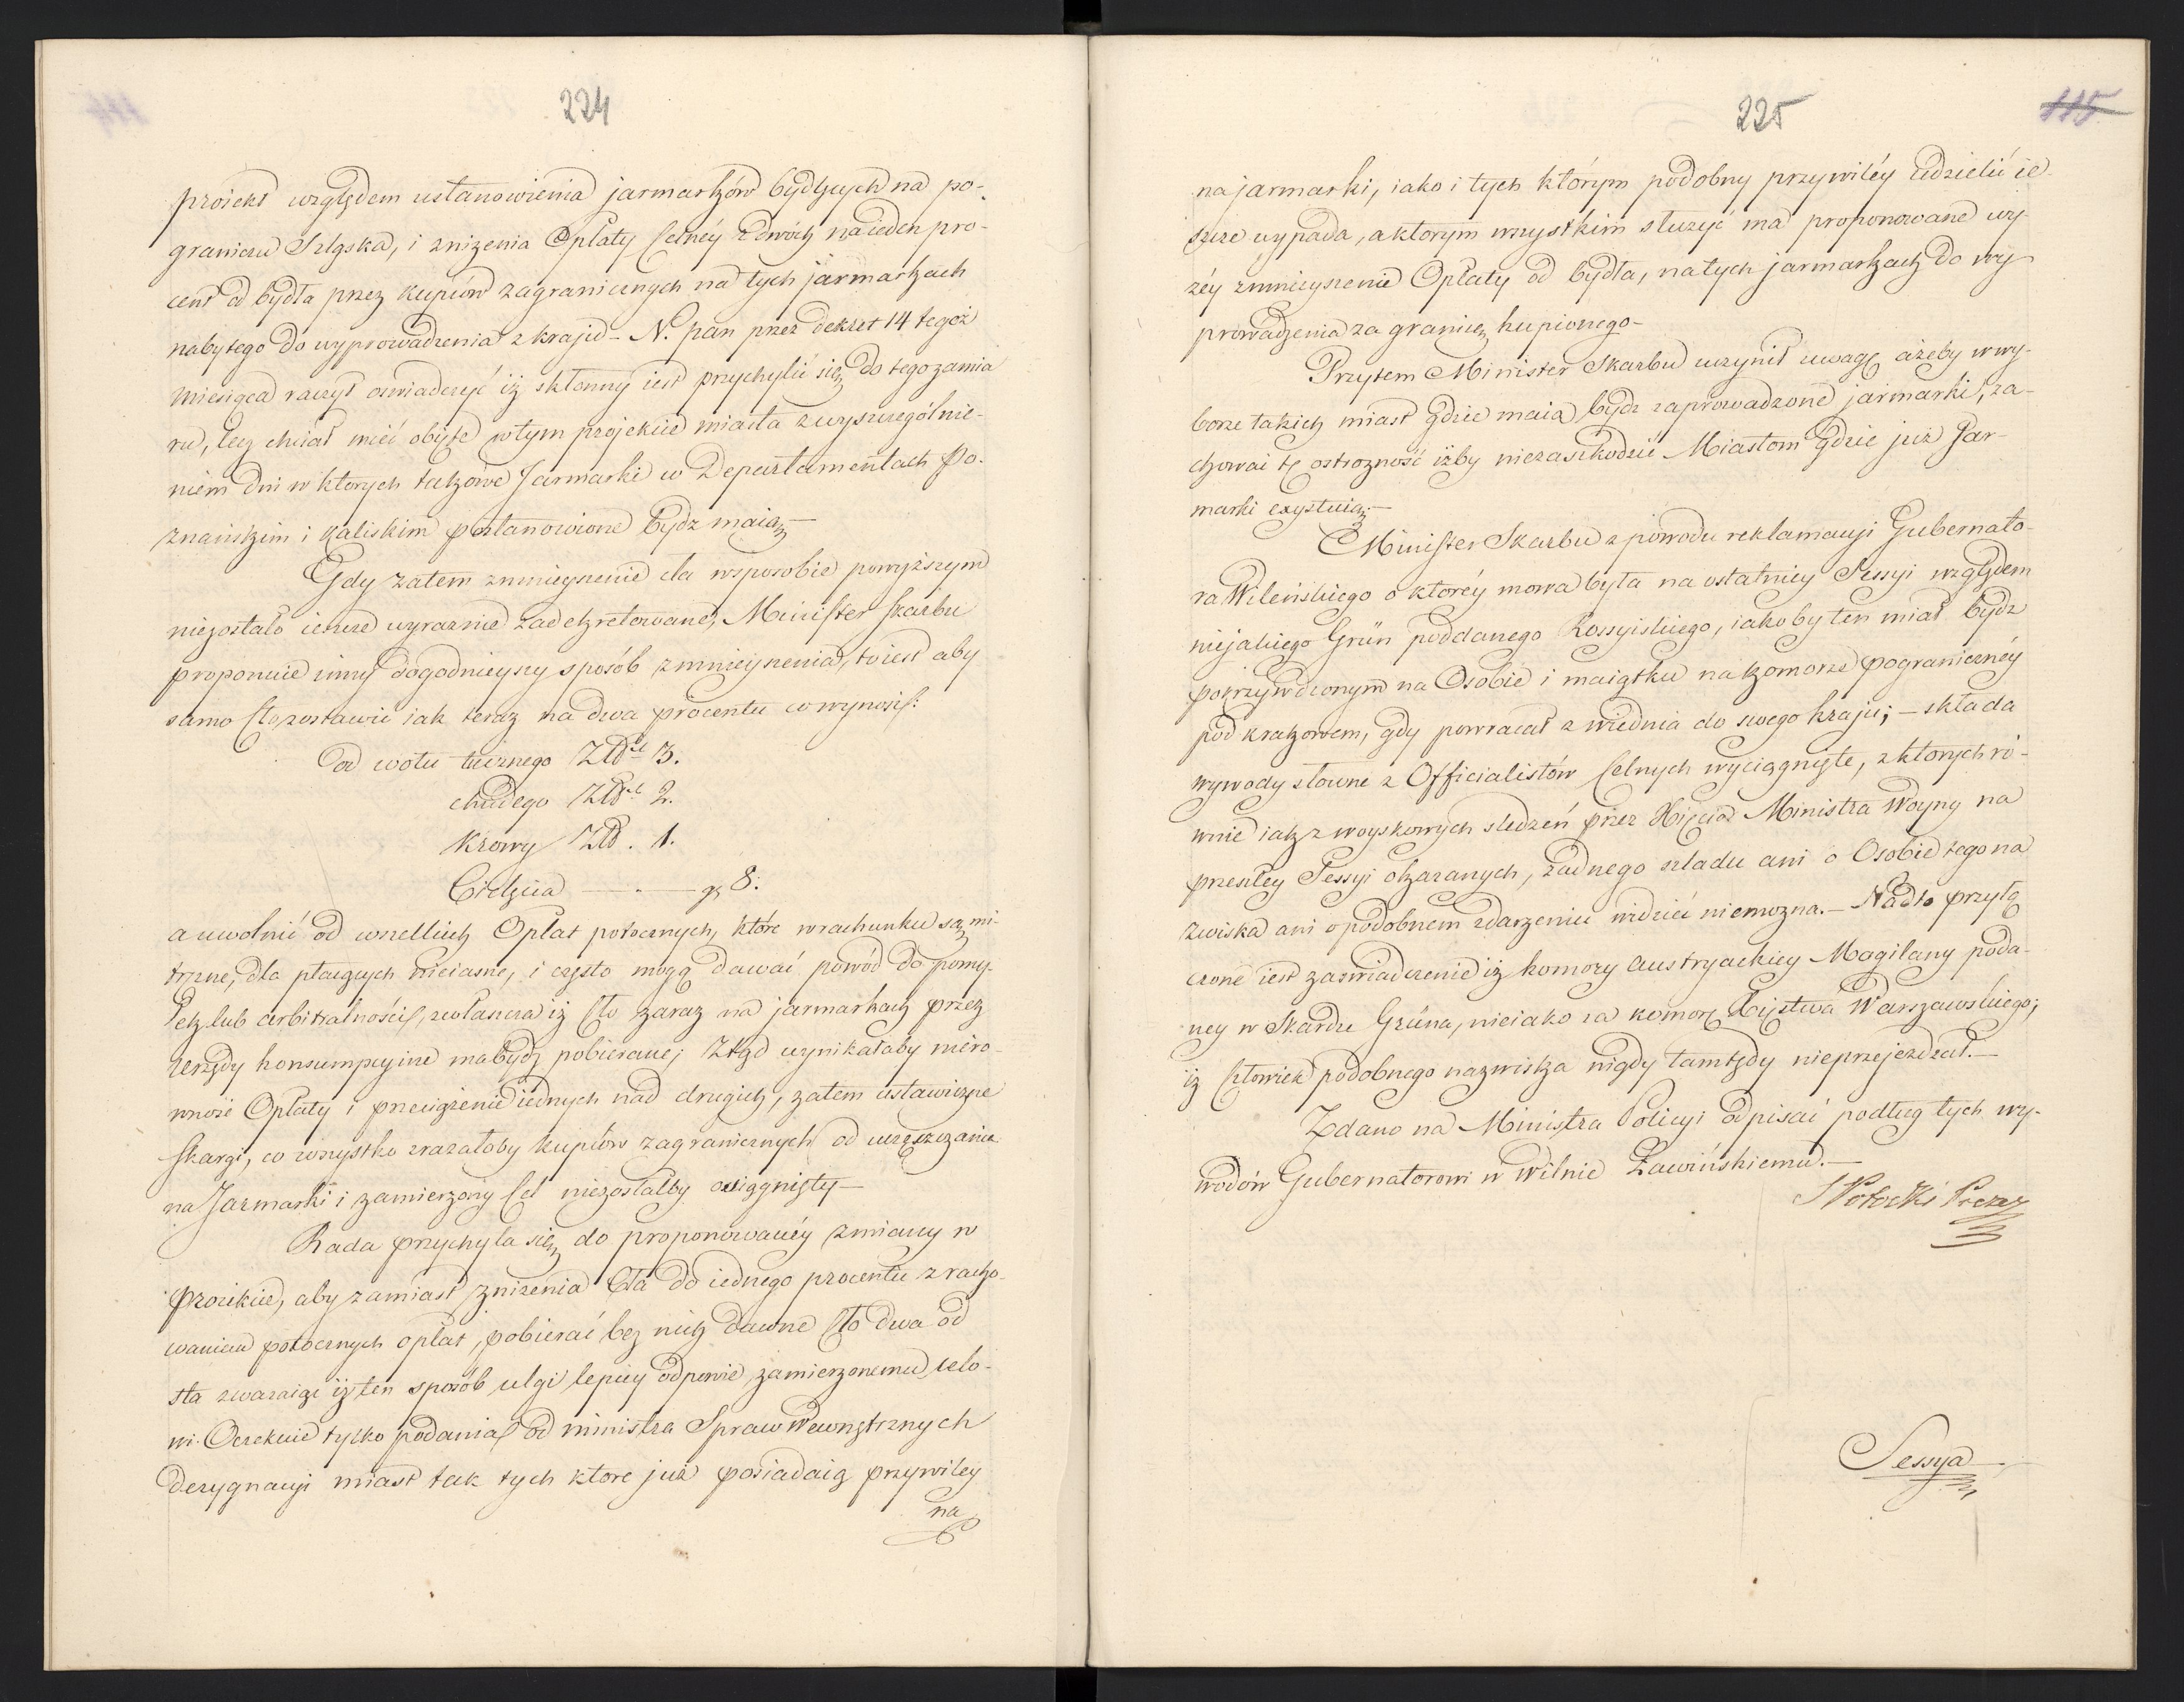 224
proiekt względem ustanowienia jarmarków bydlęcych na po-
graniczu Szląska, i zniżenia Opłaty Celnéy z dwóch na ieden pro-
cent od bydła przez kupców zagranicznych na tych jarmarkach
nabytego do wyprowadzenia z kraju – N. Pan przez dekret 14 tegoż
miesiąca raczył oswiadczyć iż skłonny iest przychylić się do tego zamia
ru, lecz chciał mieć obięte w tym projekcie miasta z wyszczególnie-
niem dni w ktorych takowe Jarmarki w Departamentach Po-
znańskim i Kaliskim postanowione bydz maią –
Gdy zatem zmnieyszenie cła w sposobie powyższym
niezostało ieszcze wyraznie zadekretowane, Minister Skarbu
proponuie inny dogodnieyszy sposób zmnieyszenia, to iest aby
samo Cło zostawić iak teraz na dwa procentu co wynosi:
Od wołu tucznego Złp. 3.
chudego Złp. 2.
Krowy Złp. 1.
Cielęcia — . — gr 8.
a uwolnić od wszelkich Opłat potocznych, które w rachunku są mi-
tręzne, dla płacących uciesne, i często mogą dawać powód do pomy-
łek lub arbitralności, zwłaszcza iż Cło zaraz na jarmarkach przez
Urzędy konsumpcyine ma bydz pobierane; Ztąd wynikałaby niero-
wność Opłaty i przeciążenie iednych nad drugich, zatem ustawiczne
skargi, co wszystko zrażałoby kupców zagranicznych od uczęszczania
na Jarmarki i zamierzony Cel niezostałby osiągnięty –
Rada przychyla się do proponowanéy zmiany w
Proiekcie, aby zamiast zniżenia Cła do iednego procentu z racho-
waniem potocznych opłat, pobierać bez nich dawne Cło dwa od
sta zwazaiąc iż ten sposób ulgi lepiey odpowie zamierzonemu celo-
wi. Oczekuie tylko podania od ministra Spraw Wewnętrznych
dezygnacyi miast tak tych ktore już posiadaią przywiley
na
225
115
na jarmarki, iako i tych którym podobny przywiléy udzielić ie-
szcze wypada, a ktorym wszystkim służyć ma proponowane wy-
zéy zmnieyszenie Opłaty od bydła, na tych jarmarkach do wy-
prowadzenia za granicę kupionego –
Przytem Minister Skarbu uczynił uwagę ażeby w wy-
borze takich miast gdzie maią bydz zaprowadzone jarmarki, za-
chować tę ostrozność iżby niezaszkodzić Miastom gdzie już Jar-
marki exystuią –
Minister Skarbu z powodu reklamacyi Gubernato-
ra Wileńskiego o ktoréy mowa była na ostatniey Sessyi względem
niejakiego Grün poddanego Rossyiskiego, iakoby ten miał bydz
pokrzywdzonym na Osobie i maiątku na komorze pogranicznéy
pod Krakowem, gdy powracał z Wiednia do swego kraju; – składa
wywody słowne z Officialistów Celnych wyciągnięte, z ktorych ró-
wnie iak z woyskowych sledzeń przez Xięcia Ministra Woyny na
przeszłey Sessyi okazanych, żadnego szladu ani o Osobie tego na
zwiska ani o podobnem zdarzeniu widzieć niemożna. – Nadto przyłą
czone iest zaswiadczenie iż komory austryackiey Mogilany poda-
ney w Skardze Grüna, nieiako za komorę Xięstwa Warszawskiego;
iż Człowiek podobnego nazwiska nigdy tamtędy nieprzejezdzał. –
Zdano na Ministra Policyi odpisać podług tych wy-
wodów Gubernatorowi w Wilnie Ławińskiemu. –
S Potocki Prezes
Sessya